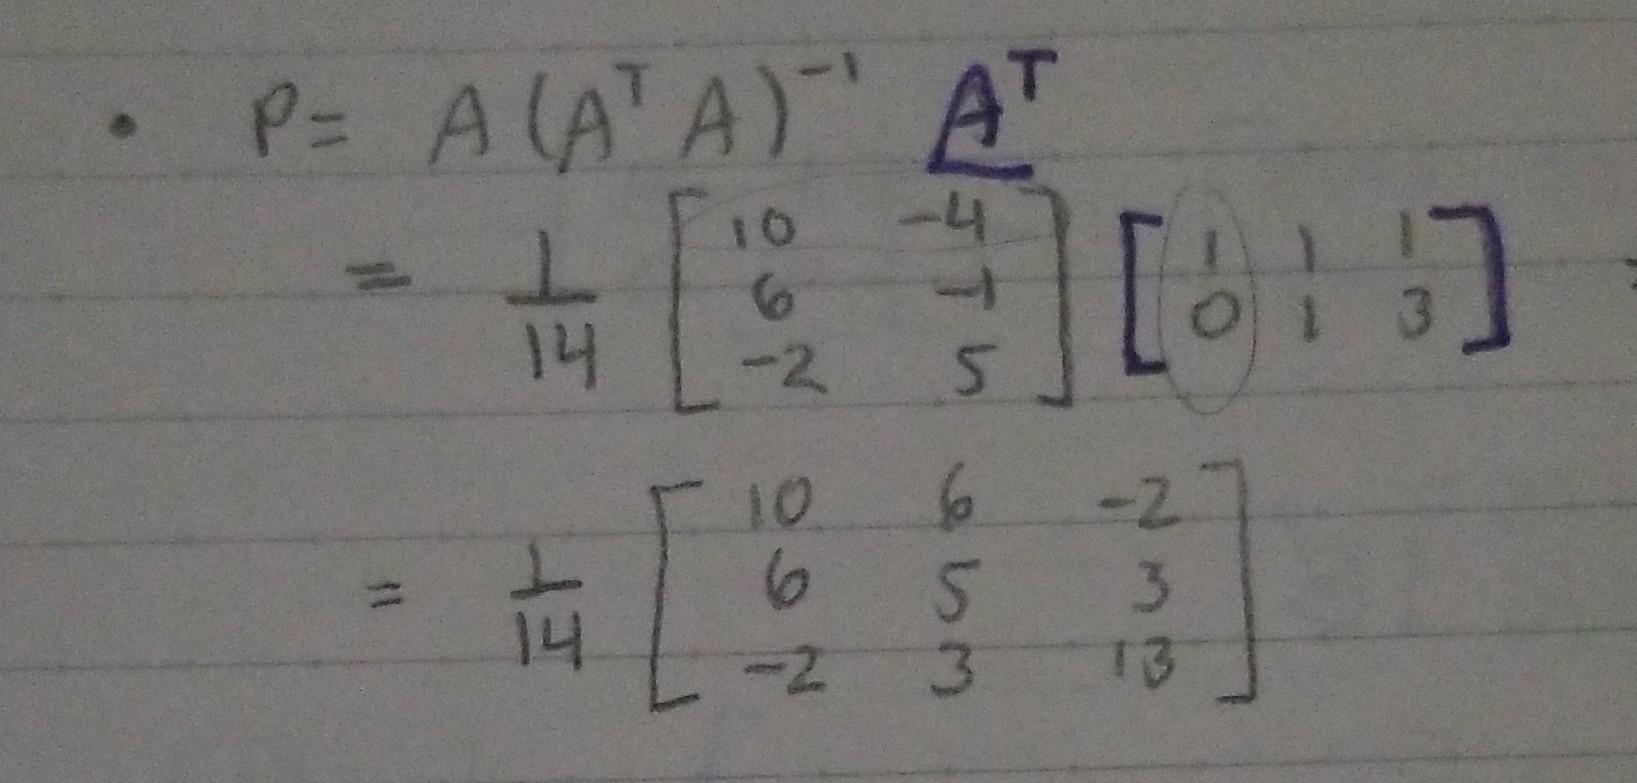 • P = A (Aᵀ A)⁻¹ Aᵀ
= 1/14 [10 -4; 6 -1; -2 5] [1 1 1; 0 1 3]
= 1/14 [10 6 -2; 6 5 3; -2 3 13]